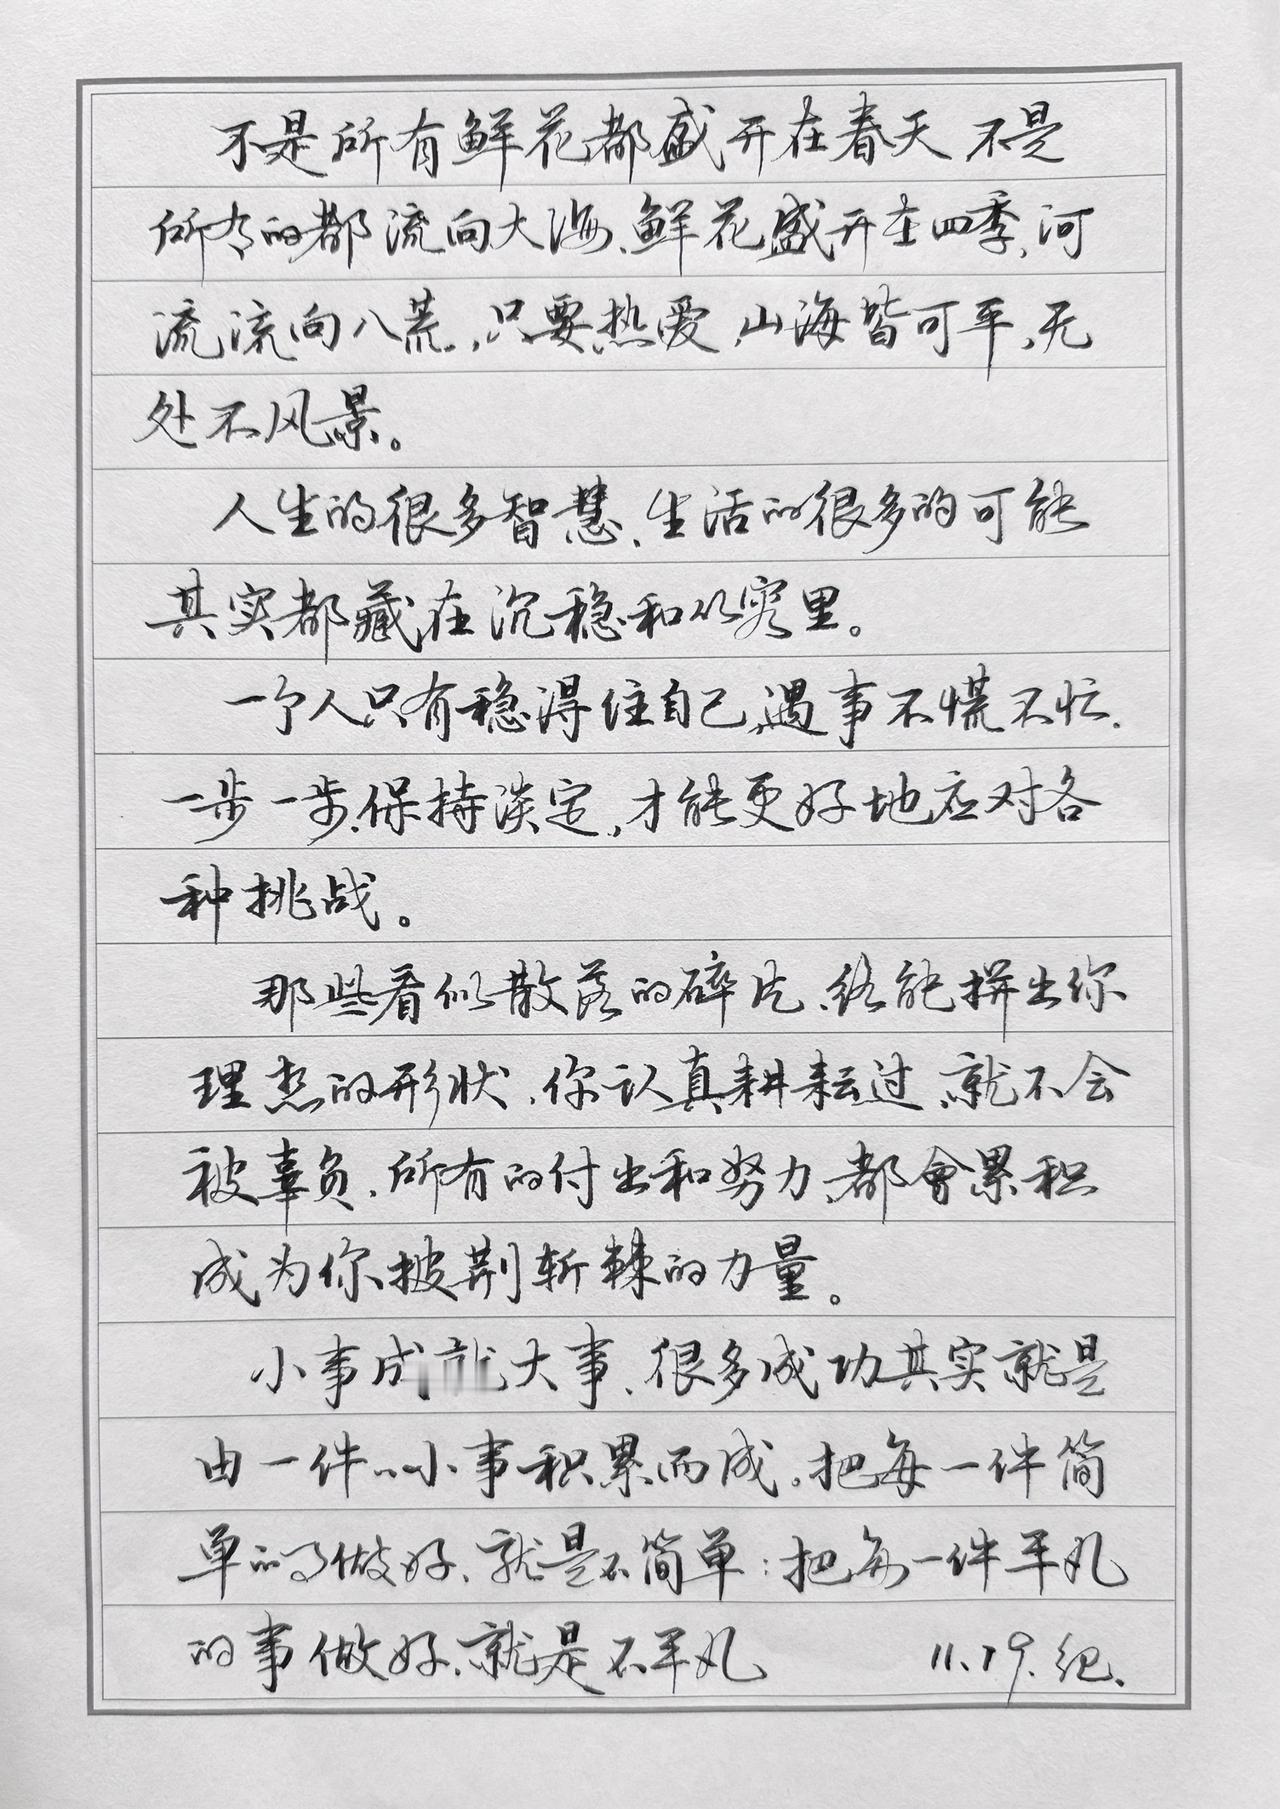 不是所有鲜花都盛开在春天,不是
所有的都流向大海、鲜花盛开在四季,河
流流向八荒,只要热爱,山海皆可平,无
处不风景。
人生的很多智慧、生活的很多的可能
其实都藏在沉稳和从容里。
一个人只有稳得住自己,遇事不慌不忙.
一步一步、保持淡定,才能更好地应对各
种挑战。
那些看似散落的碎片、终能拼出你
理想的形状、你认真耕耘过、就不会
被辜负、所有的付出和努力、都會累积
成为你披荆斩棘的力量。
小事成就大事、很多成功其实就是
由一件小事积累而成。把每一件简
单的事做好、就是不简单:把每一件平凡
的事做好、就是不平凡 11.19.纪.